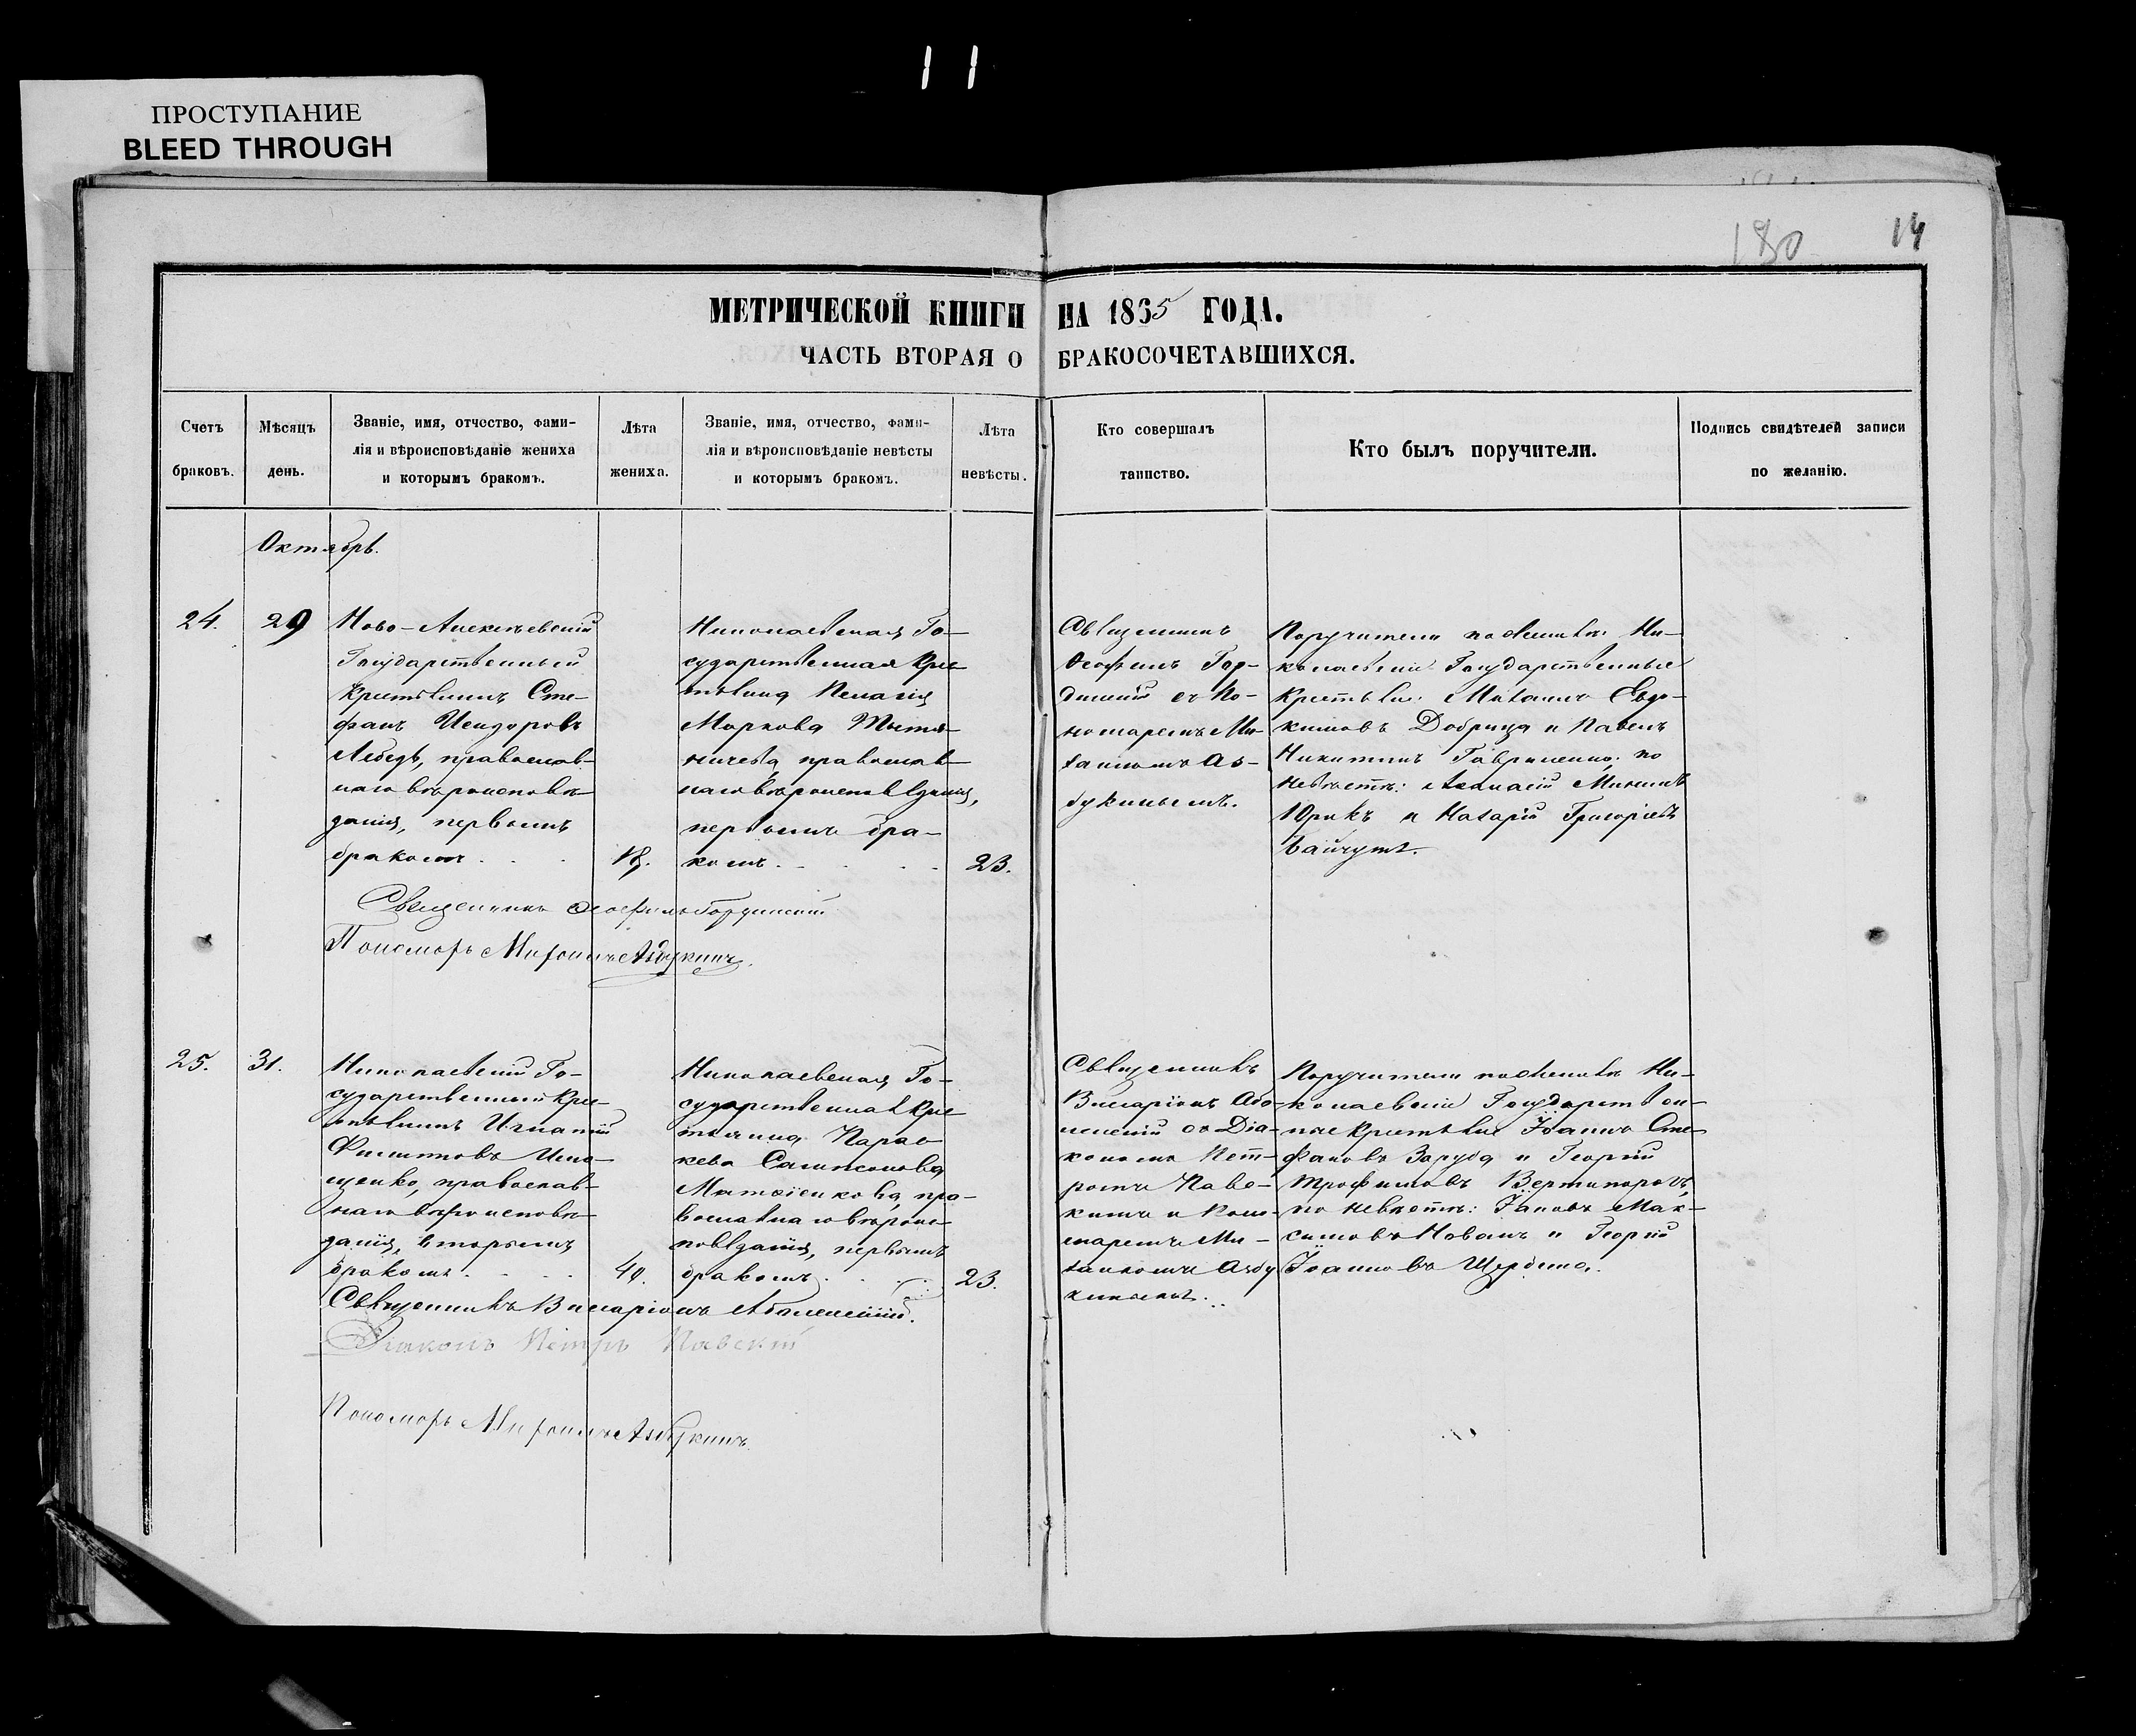 11
ПРОСТУПАНИЕ
BLEED THROUGH
180 14
МЕТРИЧЕСКОЙ КНИГИ НА 1865 ГОДА.
ЧАСТЬ ВТОРАЯ О БРАКОСОЧЕТАВШИХСЯ.
Счетъ браковъ.
Мѣсяцъ день.
Званіе, имя, отчество, фами-
лія и вѣроисповѣданіе жениха
и которымъ бракомъ.
Лѣта жениха.
Званіе, имя, отчество, фами-
лія и вѣроисповѣданіе невѣсты
и которымъ бракомъ.
Лѣта невѣсты.
Кто совершалъ
таинство.
Кто былъ поручители.
Подпись свидѣтелей записи
по желанію.
Октябрь.
24.
29
Ново-Алексѣевскій
Государственный
крестьянинъ Сте-
фанъ Исидоровъ
Лебедь, православ-
наго вѣроисповѣ-
данія, первымъ
бракомъ
Николаевская Го-
сударственная Кре-
стьянка Пелагія
Маркова
православ-
наго вѣроисповѣданія,
первымъ бра-
комъ
23.
Священникъ
Ѳеофилъ Гор-
динскій съ По-
номаремъ Ми-
Аз-
букинымъ.
Поручители по женихѣ: Ни-
колаевскіе Государственные
Крестьяне: Михаилъ Евдо-
кимовъ Добрица и Павелъ
Никитинъ Гавриленко; по
невѣстѣ: Аѳанасій
Юрикъ и Назарій Григорьевъ
Священникъ Ѳеофилъ Гординскій
Пономарь Азбукинъ.
25.
31.
Николаевскій Го-
сударственный Кре-
стьянинъ Игнатій
Филиповъ
православ-
наго вѣроисповѣ-
данія, вторымъ
бракомъ
40.
Николаевская Го-
сударственная Кре-
стьянка Парас-
кева Сампсонова
Матвіенкова, пра-
вославнаго вѣроис-
повѣданія, первымъ
бракомъ
23.
Священникъ
Виссаріонъ Або-
ленскій съ Діа-
кономъ Пет-
ромъ Павс-
кимъ и Поно-
маремъ Ми-
Азбу
кинымъ.
Поручители по женихѣ Ни-
колаевскіе Государствен-
ные Крестьяне Іоаннъ Сте-
фановъ Заруда и Георгій
Трофимовъ
по невѣстѣ: Іаковъ Мак-
симовъ и Георгій
Іоанновъ Щербина.
Священникъ Виссаріонъ Аболенскій.
Діаконъ Петръ Павскій
Пономарь Азбукинъ